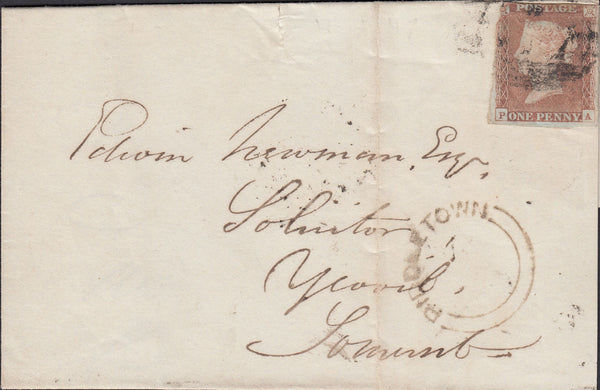 POSTAGE
P ONE PENNY A
Edwin Newman, Esq.
Solicitor
Yeovil,
Somerset
PIDDLETOWN